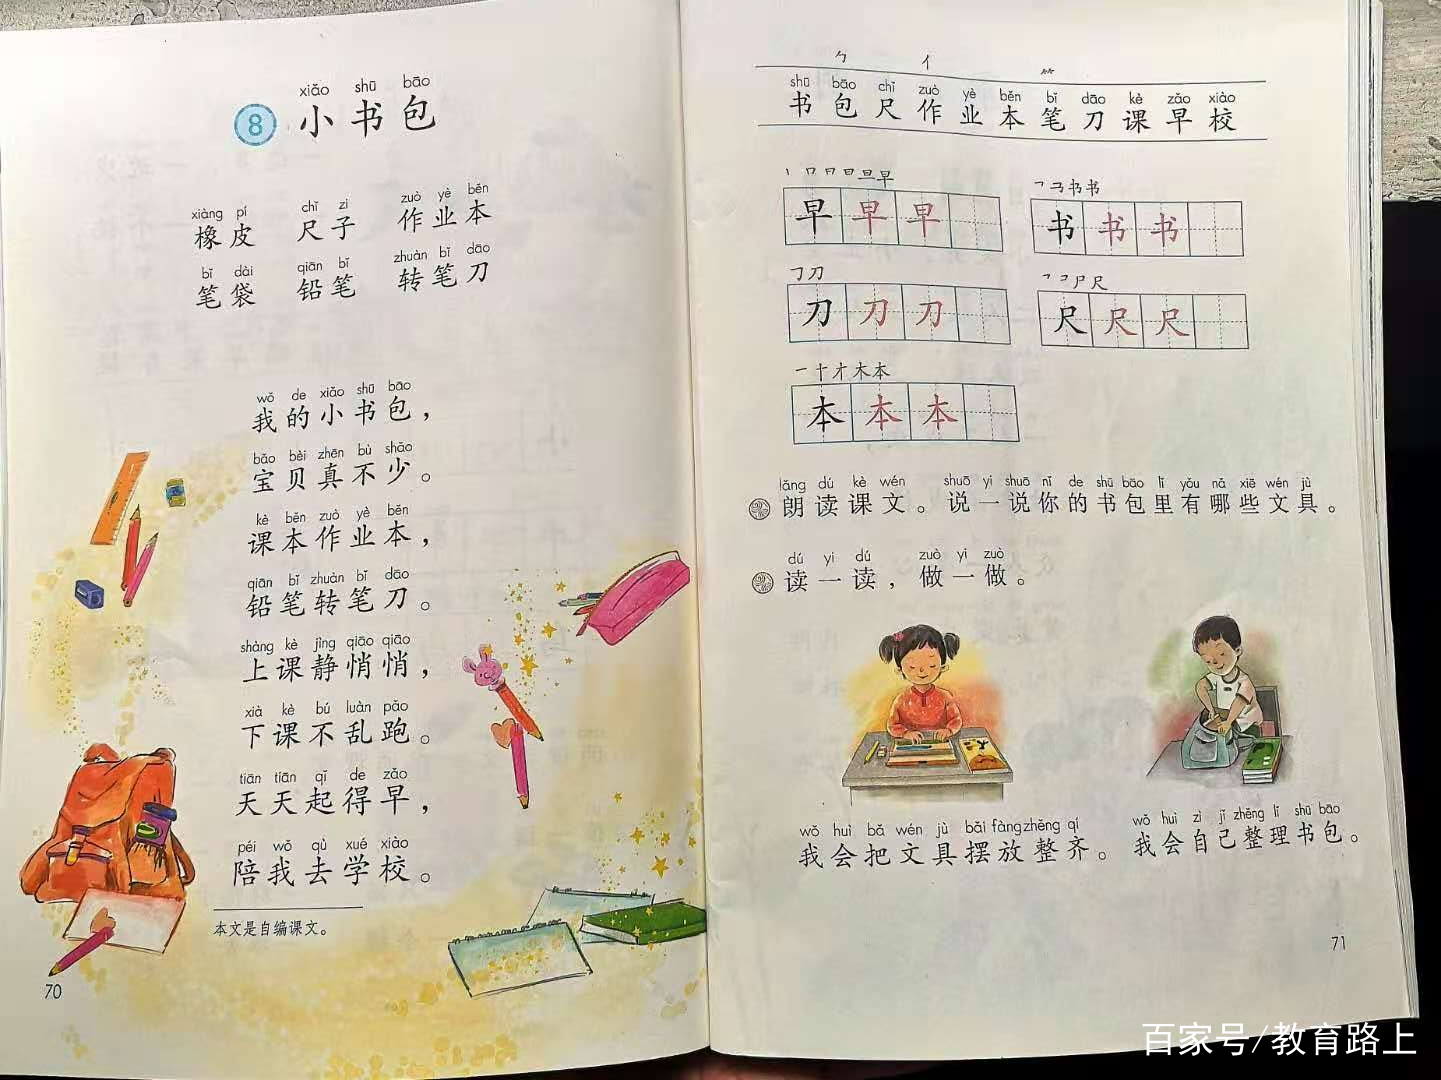 xiǎo shū bāo
8 小书包
xiàng pí chǐ zi zuò yè běn
橡皮 尺子 作业本
bǐ dài qiān bǐ zhuàn bǐ dāo
笔袋 铅笔 转笔刀
wǒ de xiǎo shū bāo
我的小书包，
bǎo bèi zhēn bù shǎo
宝贝真不少。
kè běn zuò yè běn
课本作业本，
qiān bǐ zhuàn bǐ dāo
铅笔转笔刀。
shàng kè jìng qiāo qiāo
上课静悄悄，
xià kè bú luàn pǎo
下课不乱跑。
tiān tiān qǐ de zǎo
天天起得早，
péi wǒ qù xué xiào
陪我去学校。
本文是自编课文。
70
勹 亻 ⺮
shū bāo chǐ zuò yè běn bǐ dāo kè zǎo xiào
书包尺作业本笔刀课早校
丨 口 日 日 旦 早
早 早 早
乛 书 书
书 书 书
㇆ 刀
刀 刀 刀
尸 尺
尺 尺 尺
一 十 才 木 本
本 本 本
lǎng dú kè wén shuō yi shuō nǐ de shū bāo lǐ yǒu nǎ xiē wén jù
朗读课文。说一说你的书包里有哪些文具。
dú yi dú zuò yi zuò
读一读，做一做。
wǒ huì bǎ wén jù bǎi fàng zhěng qí
我会把文具摆放整齐。
wǒ huì zì jǐ zhěng lǐ shū bāo
我会自己整理书包。
71
百家号/教育路上